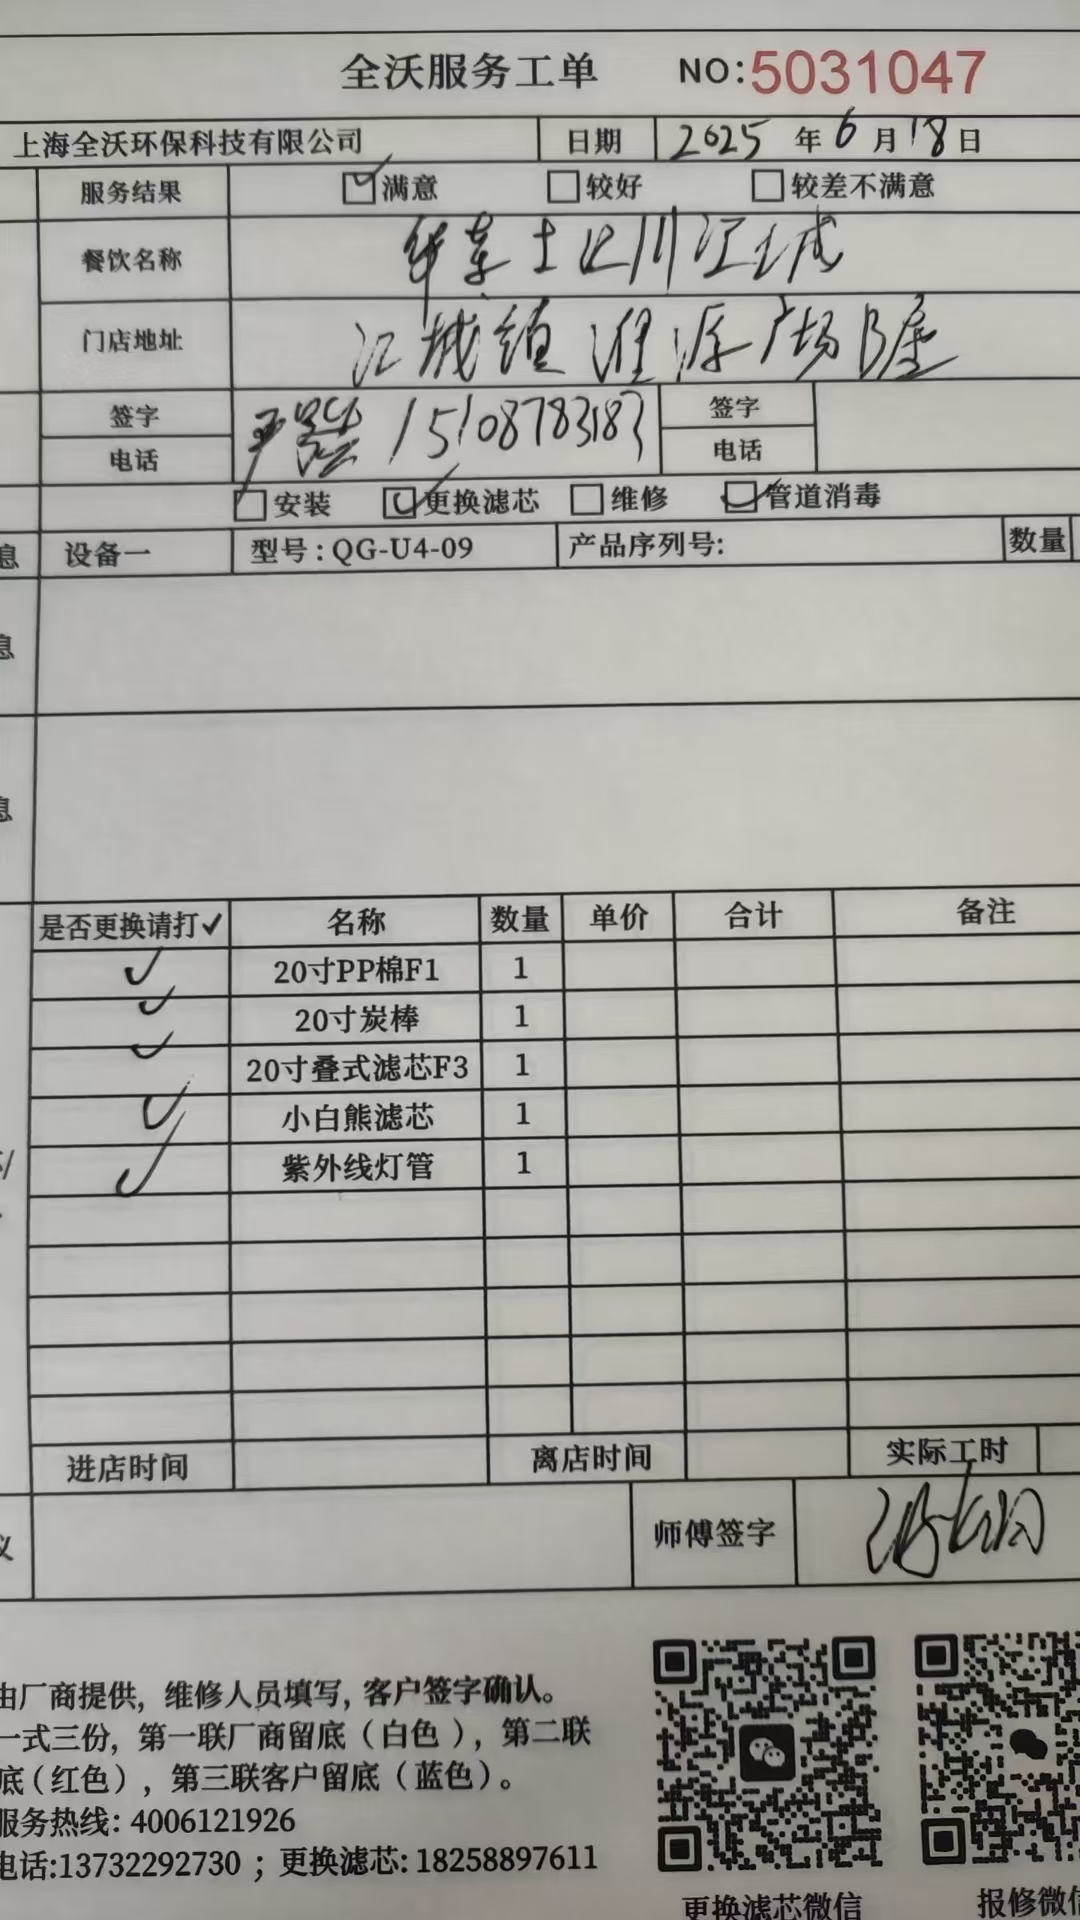 全沃服务工单 NO:5031047
上海全沃环保科技有限公司 日期 2025 年 6 月 18 日
服务结果 ☑满意 □较好 □较差不满意
餐饮名称 华莱士 江城
门店地址 江城 广场B座
签字 15108783183 签字
电话 电话
□安装 ☑更换滤芯 □维修 ☑管道消毒
息 设备一 型号:QG-U4-09 产品序列号: 数量
息
息
是否更换请打✓ 名称 数量 单价 合计 备注
✓ 20寸PP棉F1 1
✓ 20寸炭棒 1
✓ 20寸叠式滤芯F3 1
✓ 小白熊滤芯 1
✓ 紫外线灯管 1
进店时间 离店时间 实际工时
议 师傅签字
由厂商提供, 维修人员填写, 客户签字确认。
一式三份, 第一联厂商留底（白色）, 第二联
底（红色）, 第三联客户留底（蓝色）。
服务热线: 4006121926
电话:13732292730 ; 更换滤芯: 18258897611
更换滤芯微信 报修微信